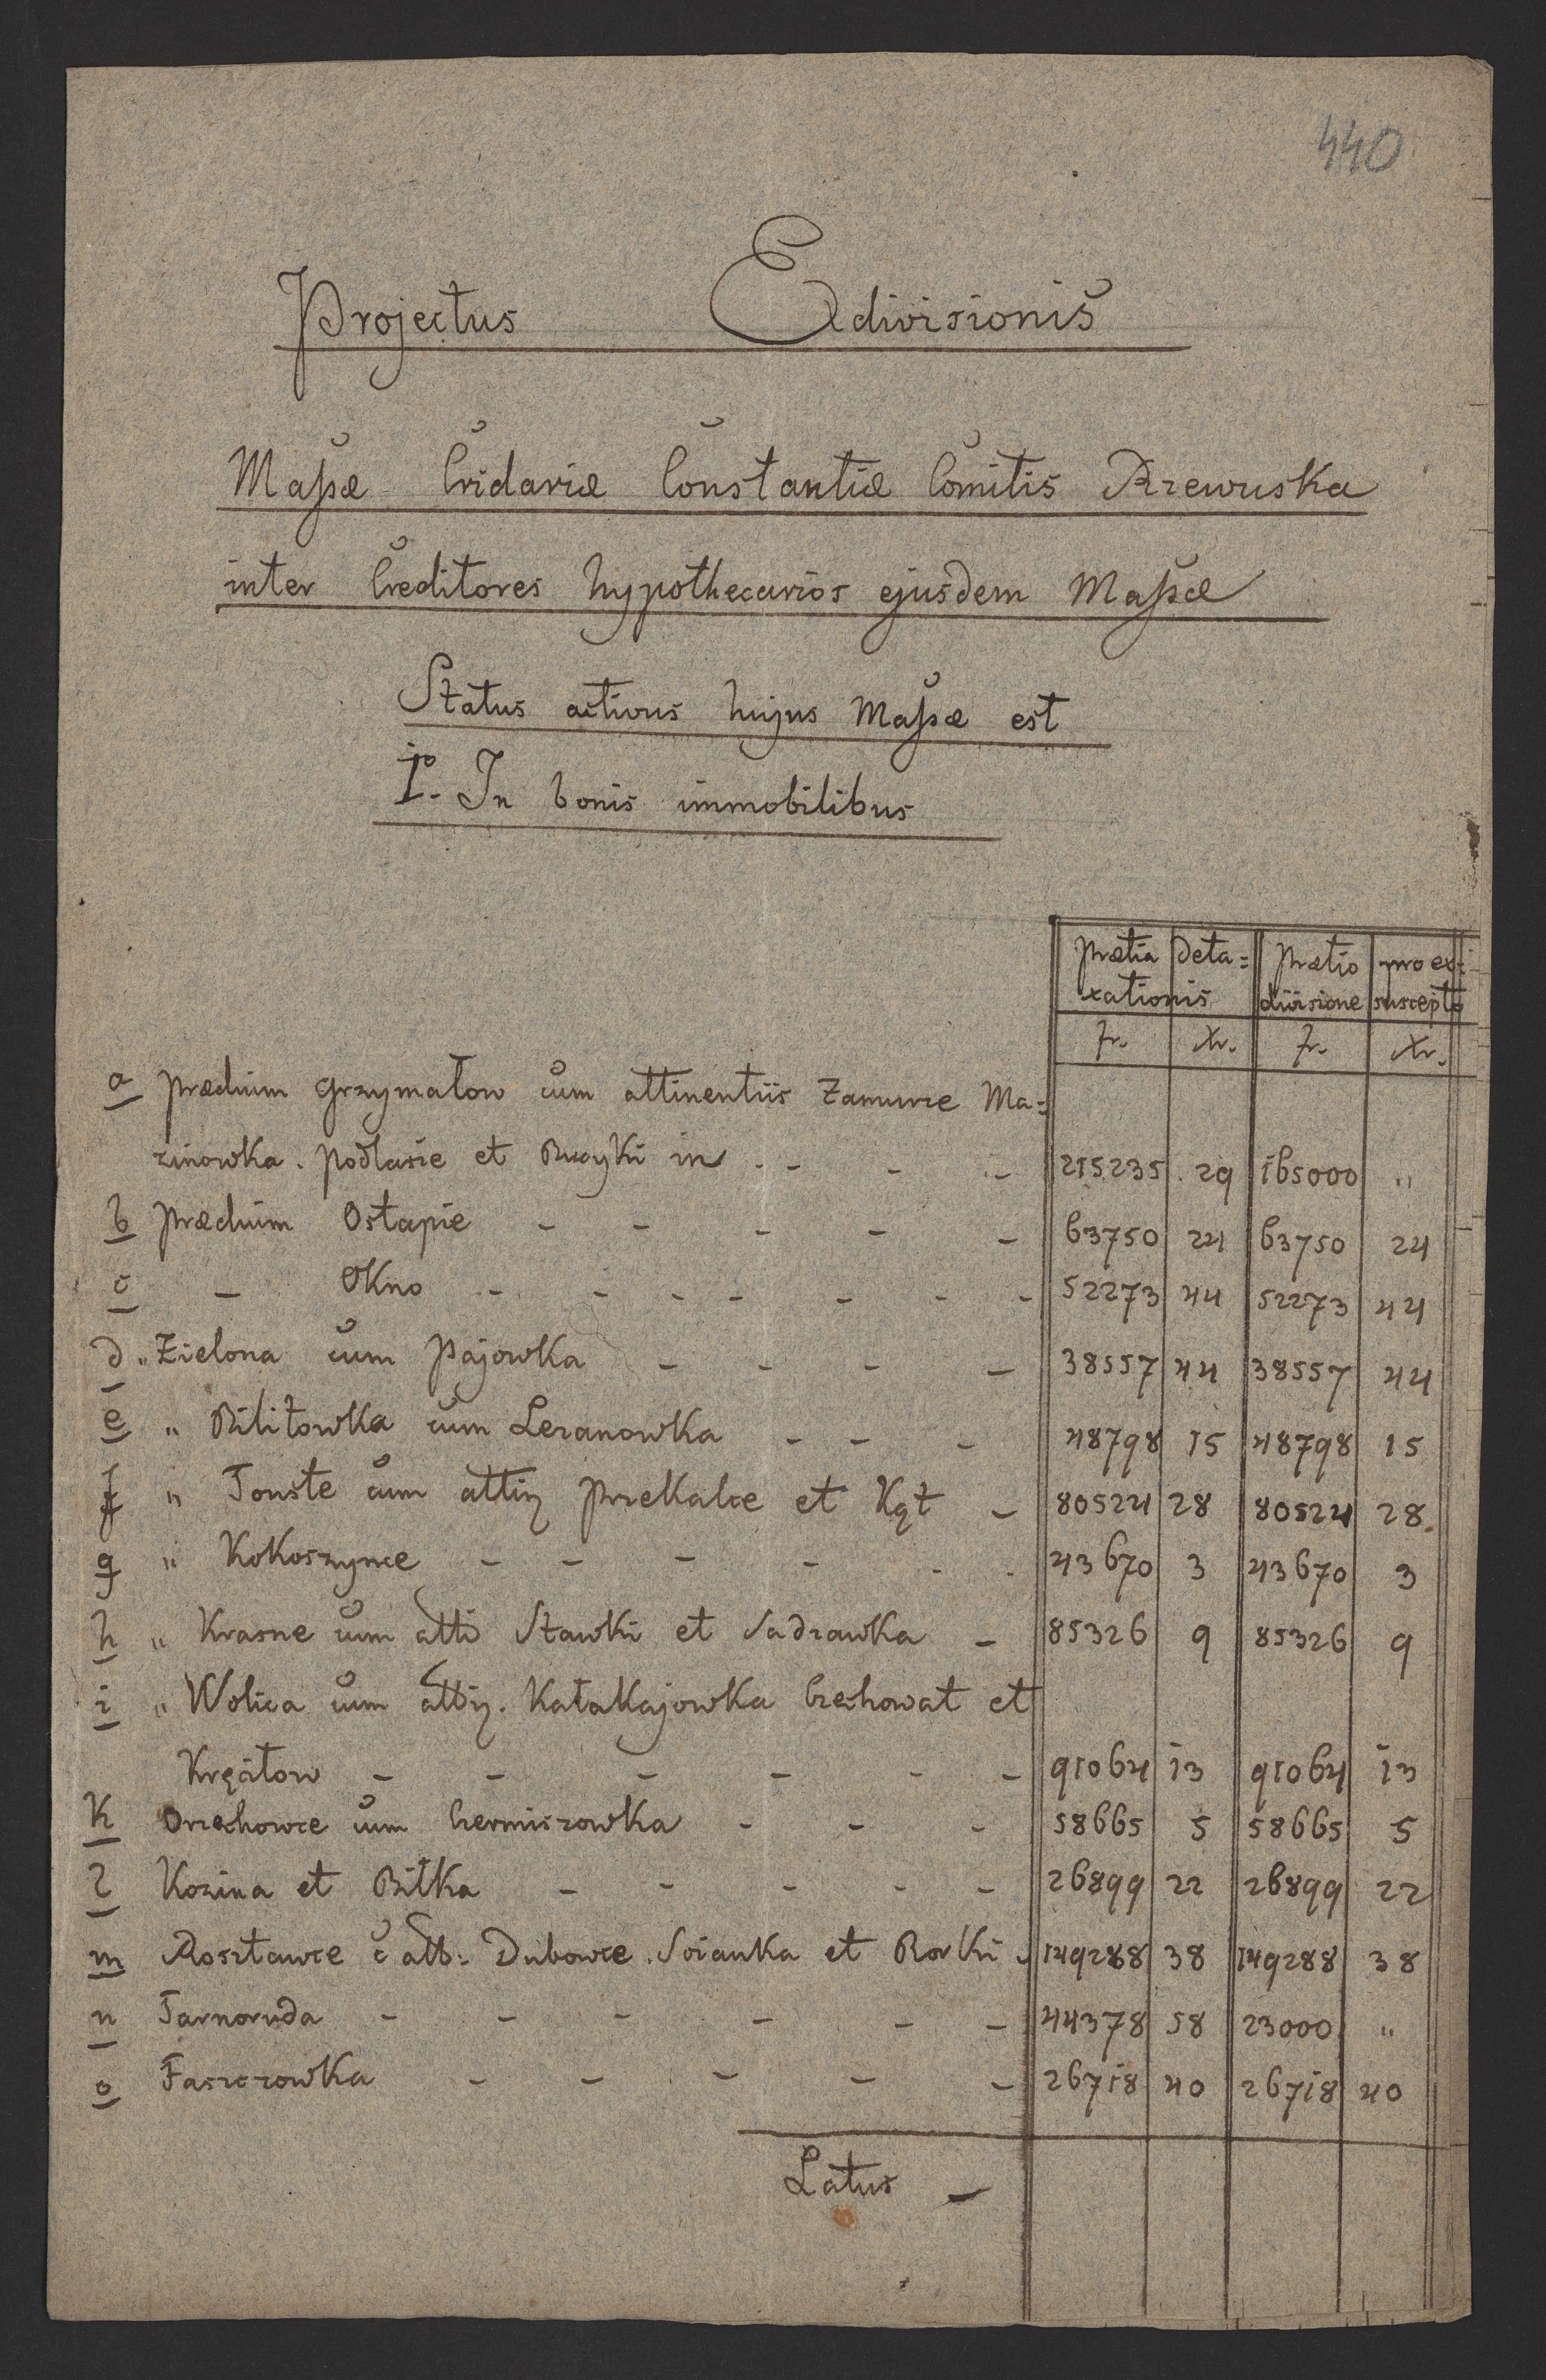 440
Projectus Exdivisionis
Massæ Cridariæ Constantiæ Comitis Rzewuska
inter Creditores hypothecarios ejusdem Massæ
Status activus hujus Massæ est
I.o In bonis immobilibus
prætia deta= prætio pro ex=
xationis divisione suscepto
fr. Xr. fr. Xr.
a prædium Grzymałow cum attinentiis Zamurze Ma=
zinowka. podlasie et Bucyki in - - - 215235 29 165000 "
b prædium Ostapie - - - - - 63750 24 63750 24
c - Okno - - - - - - - 52273 44 52273 44
d " Zielona cum Pajowka - - - - 38557 44 38557 44
e " Bilitowka cum Lezanowka - - - 48798 15 48798 15
f " Touste cum attin przekalce et Kąt - 80524 28 80524 28
g " Kokoszynce - - - - - - 43670 3 43670 3
h " Krasne cum atti Stawki et Sadzawka - 85326 9 85326 9
i " Wolica cum attin. Kałakajowka Crechowat et
Kręciłow - - - - - - 91064 13 91064 13
k Orzechowce cum Czerniszowka - - - 58665 5 58665 5
l Kozina et Bitka - - - - - 26899 22 26899 22
m Rosztawce c att: Dubowce Soianka et Borki - 149288 38 149288 38
n Tarnoruda - - - - - - 44378 58 23000 "
o Faszczowka - - - - - 26718 40 26718 40
Latus -